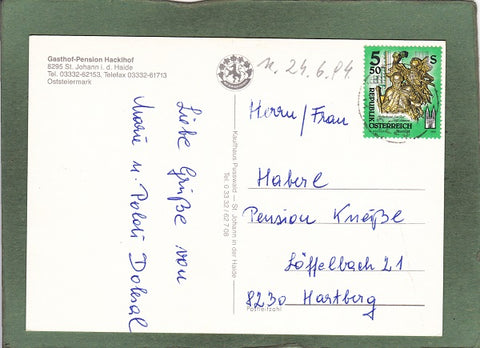 Gasthof-Pension Hacklhof
8295 St. Johann i. d. Haide
Tel. 03332-62153, Telefax 03332-61713
Oststeiermark
n. 24.6.94
5 50 S
REPUBLIK
ÖSTERREICH
Liebe Grüße von
Marie u. Poldi Dolesal
Kaufhaus Posswald — St. Johann in der Haide
Tel. 0 33 32 / 62 7 06
Herrn/Frau
Haberl
Pension Kneißl
Löffelbach 21
8230 Hartberg
Postleitzahl